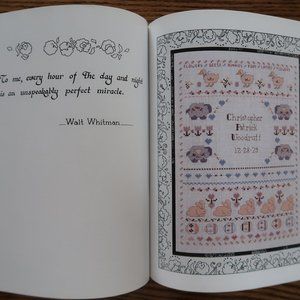 To me, every hour of the day and night
is an unspeakably perfect miracle.
Walt Whitman
Christopher
Patrick
Woodruff